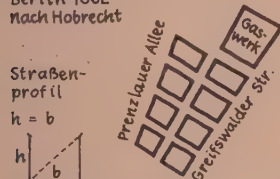 Berlin 1862
nach Hobrecht
Straßen-
profil
h = b
h
b
Prenzlauer Allee
Gas-
werk
Greifswalder Str.